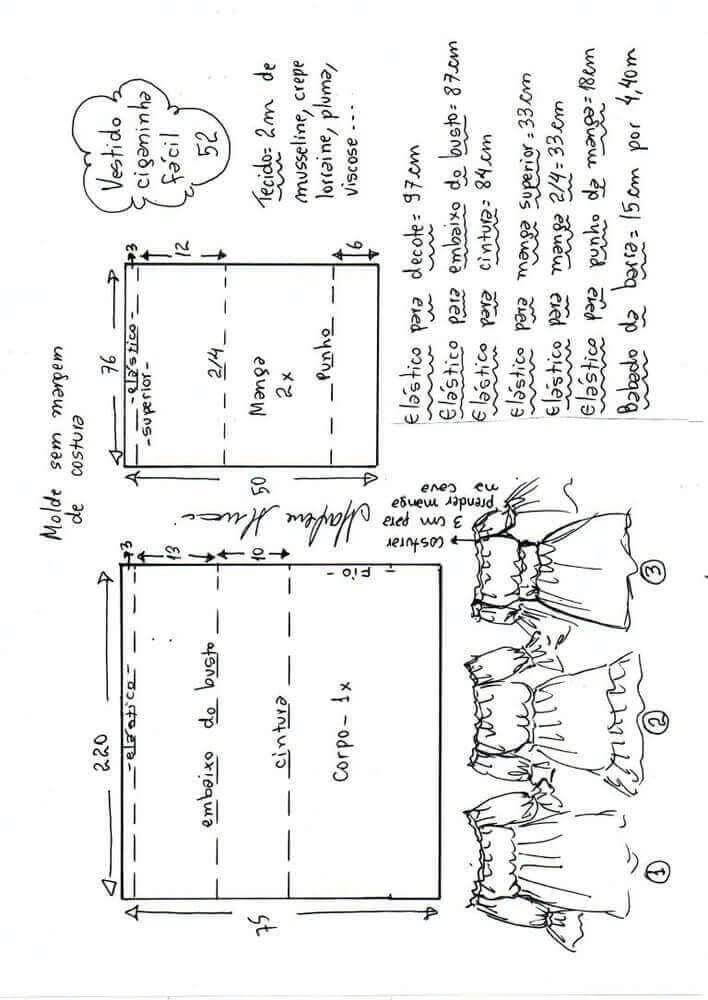 Molde sem margem
de costura
Vestido
ciganinha
fácil
52
Tecido= 2m de
musseline, crepe
lorraine, pluma,
viscose....
220
75
-elástico-
3
13
embaixo do busto
10
cintura
Corpo- 1x
Fio-
76
50
-elástico-
-superior-
3
12
2/4
Manga
2x
Punho
6
Elástico para decote= 97cm
Elástico para embaixo do busto= 87cm
Elástico para cintura= 84cm
Elástico para manga superior=33cm
Elástico para manga 2/4=33cm
Elástico para punho da manga=18cm
Babado da barra= 15cm por 4,40m
costurar
3 cm para
prender manga
na cava
1
2
3